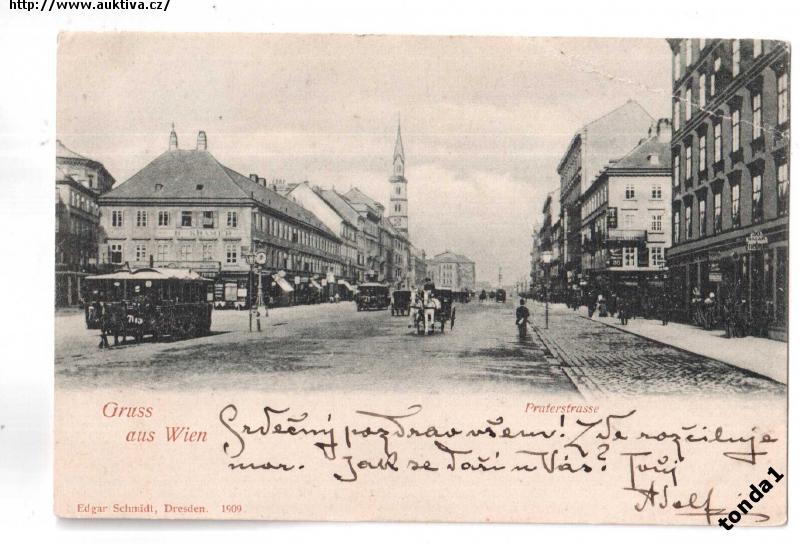 http://www.auktiva.cz/
H. KRAMER
Gruss
aus Wien
Praterstrasse
Srdečný pozdrav všem! Zde rozčiluje
mor. Jak se daří u Vás? Tvůj
Adolf
Edgar Schmidt, Dresden. 1909
tonda1